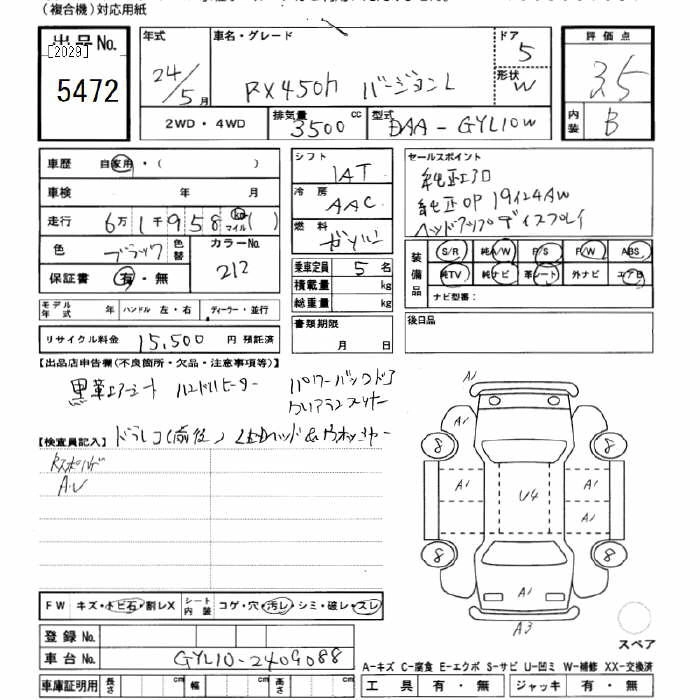 (複合機)対応用紙
出品No.
[2029]
5472
年式
24/5月
車名・グレード
RX450h バージョンL
ドア
5
形状
W
評価点
3.5
内装
B
2WD・4WD
排気量
3500cc
型式
DAA-GYL10W
車歴
自家用・( )
車検 年 月
走行
6万1千958km マイル( )
色
ブラック
色替
カラーNo.
212
保証書
有・無
シフト
IAT
冷房
AAC
燃料
ガソリン
乗車定員 5名
積載量 kg
総重量 kg
セールスポイント
純正エアロ
純正OP 19インチAW
ヘッドアップディスプレイ
装備品
S/R 純A/W P/S P/W ABS
純TV 純ナビ 革シート 外ナビ エアB
ナビ型番:
モデル年式 年 ハンドル 左・右 ディーラー・並行
リサイクル料金 15,500円 預託済
書類期限
月 日
後日品
【出品店申告欄(不良箇所・欠品・注意事項等)】
黒革エアーシート ハンドルヒーター パワーバックドア
クリアランスソナー
ドラレコ(前後) LEDヘッド&ウォッシャー
【検査員記入】
A.U
A1
8 8
A1 A1
U4
A1
8 8
A1
A3
スペア
FW キズ・トビ石・割レX シート内装 コゲ・穴・汚レ・シミ・破レ・スレ
登録No.
車台No. GYL10-2409088
A-キズ C-腐食 E-エクボ S-サビ U-凹ミ W-補修 XX-交換済
車庫証明用 長さ cm 幅 cm 高さ cm
工具 有・無 ジャッキ 有・無